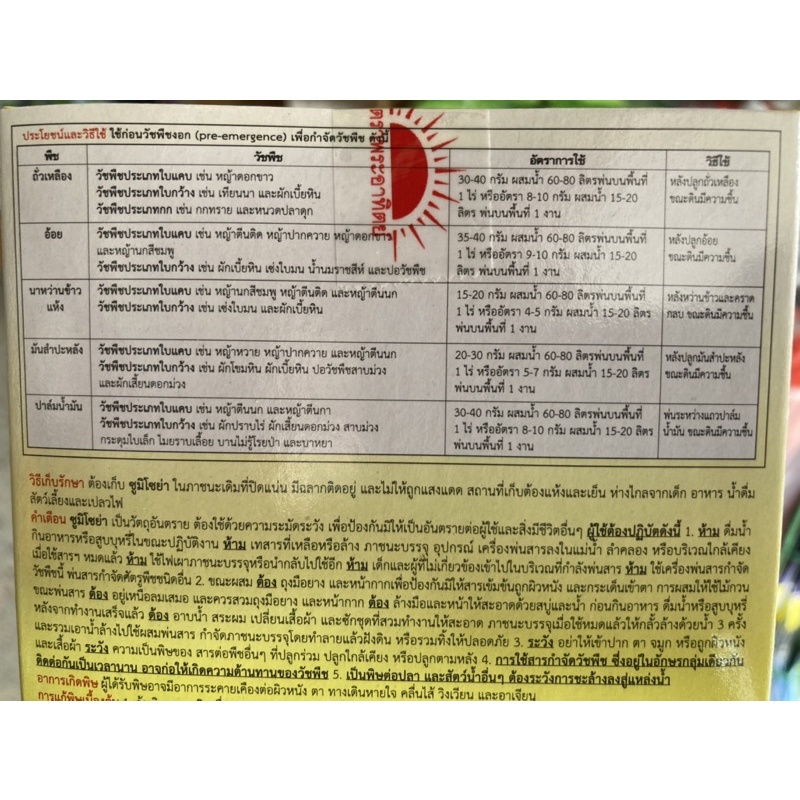 ประโยชน์และวิธีใช้ ใช้ก่อนวัชพืชงอก (pre-emergence) เพื่อกำจัดวัชพืช ดังนี้
ตราพระอาทิตย์
พืช วัชพืช อัตราการใช้ วิธีใช้
ถั่วเหลือง
วัชพืชประเภทใบแคบ เช่น หญ้าดอกขาว
วัชพืชประเภทใบกว้าง เช่น เทียนนา และผักเบี้ยหิน
วัชพืชประเภทกก เช่น กกทราย และหนวดปลาดุก
30-40 กรัม ผสมน้ำ 60-80 ลิตรพ่นบนพื้นที่
1 ไร่ หรืออัตรา 8-10 กรัม ผสมน้ำ 15-20
ลิตร พ่นบนพื้นที่ 1 งาน
หลังปลูกถั่วเหลือง
ขณะดินมีความชื้น
อ้อย
วัชพืชประเภทใบแคบ เช่น หญ้าตีนติด หญ้าปากควาย หญ้าดอกขาว
และหญ้านกสีชมพู
วัชพืชประเภทใบกว้าง เช่น ผักเบี้ยหิน เซ่งใบมน น้ำนมราชสีห์ และปอวัชพืช
35-40 กรัม ผสมน้ำ 60-80 ลิตรพ่นบนพื้นที่
1 ไร่ หรืออัตรา 9-10 กรัม ผสมน้ำ 15-20
ลิตร พ่นบนพื้นที่ 1 งาน
หลังปลูกอ้อย
ขณะดินมีความชื้น
นาหว่านข้าว
แห้ง
วัชพืชประเภทใบแคบ เช่น หญ้านกสีชมพู หญ้าตีนติด และหญ้าตีนนก
วัชพืชประเภทใบกว้าง เช่น เซ่งใบมน และผักเบี้ยหิน
15-20 กรัม ผสมน้ำ 60-80 ลิตรพ่นบนพื้นที่
1 ไร่ หรืออัตรา 4-5 กรัม ผสมน้ำ 15-20 ลิตร
พ่นบนพื้นที่ 1 งาน
หลังหว่านข้าวและคราด
กลบ ขณะดินมีความชื้น
มันสำปะหลัง
วัชพืชประเภทใบแคบ เช่น หญ้าหวาย หญ้าปากควาย และหญ้าตีนนก
วัชพืชประเภทใบกว้าง เช่น ผักโขมหิน ผักเบี้ยหิน ปอวัชพืชสาบม่วง
และผักเสี้ยนดอกม่วง
20-30 กรัม ผสมน้ำ 60-80 ลิตรพ่นบนพื้นที่
1 ไร่ หรืออัตรา 5-7 กรัม ผสมน้ำ 15-20 ลิตร
พ่นบนพื้นที่ 1 งาน
หลังปลูกมันสำปะหลัง
ขณะดินมีความชื้น
ปาล์มน้ำมัน
วัชพืชประเภทใบแคบ เช่น หญ้าตีนนก และหญ้าตีนกา
วัชพืชประเภทใบกว้าง เช่น ผักปราบไร่ ผักเสี้ยนดอกม่วง สาบม่วง
กระดุมใบเล็ก ไมยราบเลื้อย บานไม่รู้โรยป่า และบาหยา
30-40 กรัม ผสมน้ำ 60-80 ลิตรพ่นบนพื้นที่
1 ไร่ หรืออัตรา 8-10 กรัม ผสมน้ำ 15-20 ลิตร
พ่นบนพื้นที่ 1 งาน
พ่นระหว่างแถวปาล์ม
น้ำมัน ขณะดินมีความชื้น
วิธีเก็บรักษา ต้องเก็บ ซูมิโซย่า ในภาชนะเดิมที่ปิดแน่น มีฉลากติดอยู่ และไม่ให้ถูกแสงแดด สถานที่เก็บต้องแห้งและเย็น ห่างไกลจากเด็ก อาหาร น้ำดื่ม
สัตว์เลี้ยงและเปลวไฟ
คำเตือน ซูมิโซย่า เป็นวัตถุอันตราย ต้องใช้ด้วยความระมัดระวัง เพื่อป้องกันมิให้เป็นอันตรายต่อผู้ใช้และสิ่งมีชีวิตอื่นๆ ผู้ใช้ต้องปฏิบัติดังนี้ 1. ห้าม ดื่มน้ำ
กินอาหารหรือสูบบุหรี่ในขณะปฏิบัติงาน ห้าม เทสารที่เหลือหรือล้าง ภาชนะบรรจุ อุปกรณ์ เครื่องพ่นสารลงในแม่น้ำ ลำคลอง หรือบริเวณใกล้เคียง
เมื่อใช้สารฯ หมดแล้ว ห้าม ใช้ไฟเผาภาชนะบรรจุหรือนำกลับไปใช้อีก ห้าม เด็กและผู้ที่ไม่เกี่ยวข้องเข้าไปในบริเวณที่กำลังพ่นสาร ห้าม ใช้เครื่องพ่นสารกำจัด
วัชพืชนี้ พ่นสารกำจัดศัตรูพืชชนิดอื่น 2. ขณะผสม ต้อง ถุงมือยาง และหน้ากากเพื่อป้องกันมิให้สารเข้มข้นถูกผิวหนัง และกระเด็นเข้าตา การผสมให้ใช้ไม้กวน
ขณะพ่นสาร ต้อง อยู่เหนือลมเสมอ และควรสวมถุงมือยาง และหน้ากาก ต้อง ล้างมือและหน้าให้สะอาดด้วยสบู่และน้ำ ก่อนกินอาหาร ดื่มน้ำหรือสูบบุหรี่
หลังจากทำงานเสร็จแล้ว ต้อง อาบน้ำ สระผม เปลี่ยนเสื้อผ้า และซักชุดที่สวมทำงานให้สะอาด ภาชนะบรรจุเมื่อใช้หมดแล้วให้กลั้วล้างด้วยน้ำ 3 ครั้ง
และรวมเอาน้ำล้างไปใช้ผสมพ่นสาร กำจัดภาชนะบรรจุโดยทำลายแล้วฝังดิน หรือรวมทิ้งให้ปลอดภัย 3. ระวัง อย่าให้เข้าปาก ตา จมูก หรือถูกผิวหนัง
และเสื้อผ้า ระวัง ความเป็นพิษของ สารต่อพืชอื่นๆ ที่ปลูกร่วม ปลูกใกล้เคียง หรือปลูกตามหลัง 4. การใช้สารกำจัดวัชพืช ซึ่งอยู่ในอักษรกลุ่มเดียวกัน
ติดต่อกันเป็นเวลานาน อาจก่อให้เกิดความต้านทานของวัชพืช 5. เป็นพิษต่อปลา และสัตว์น้ำอื่นๆ ต้องระวังการชะล้างลงสู่แหล่งน้ำ
อาการเกิดพิษ ผู้ได้รับพิษอาจมีอาการระคายเคืองต่อผิวหนัง ตา ทางเดินหายใจ คลื่นไส้ วิงเวียน และอาเจียน